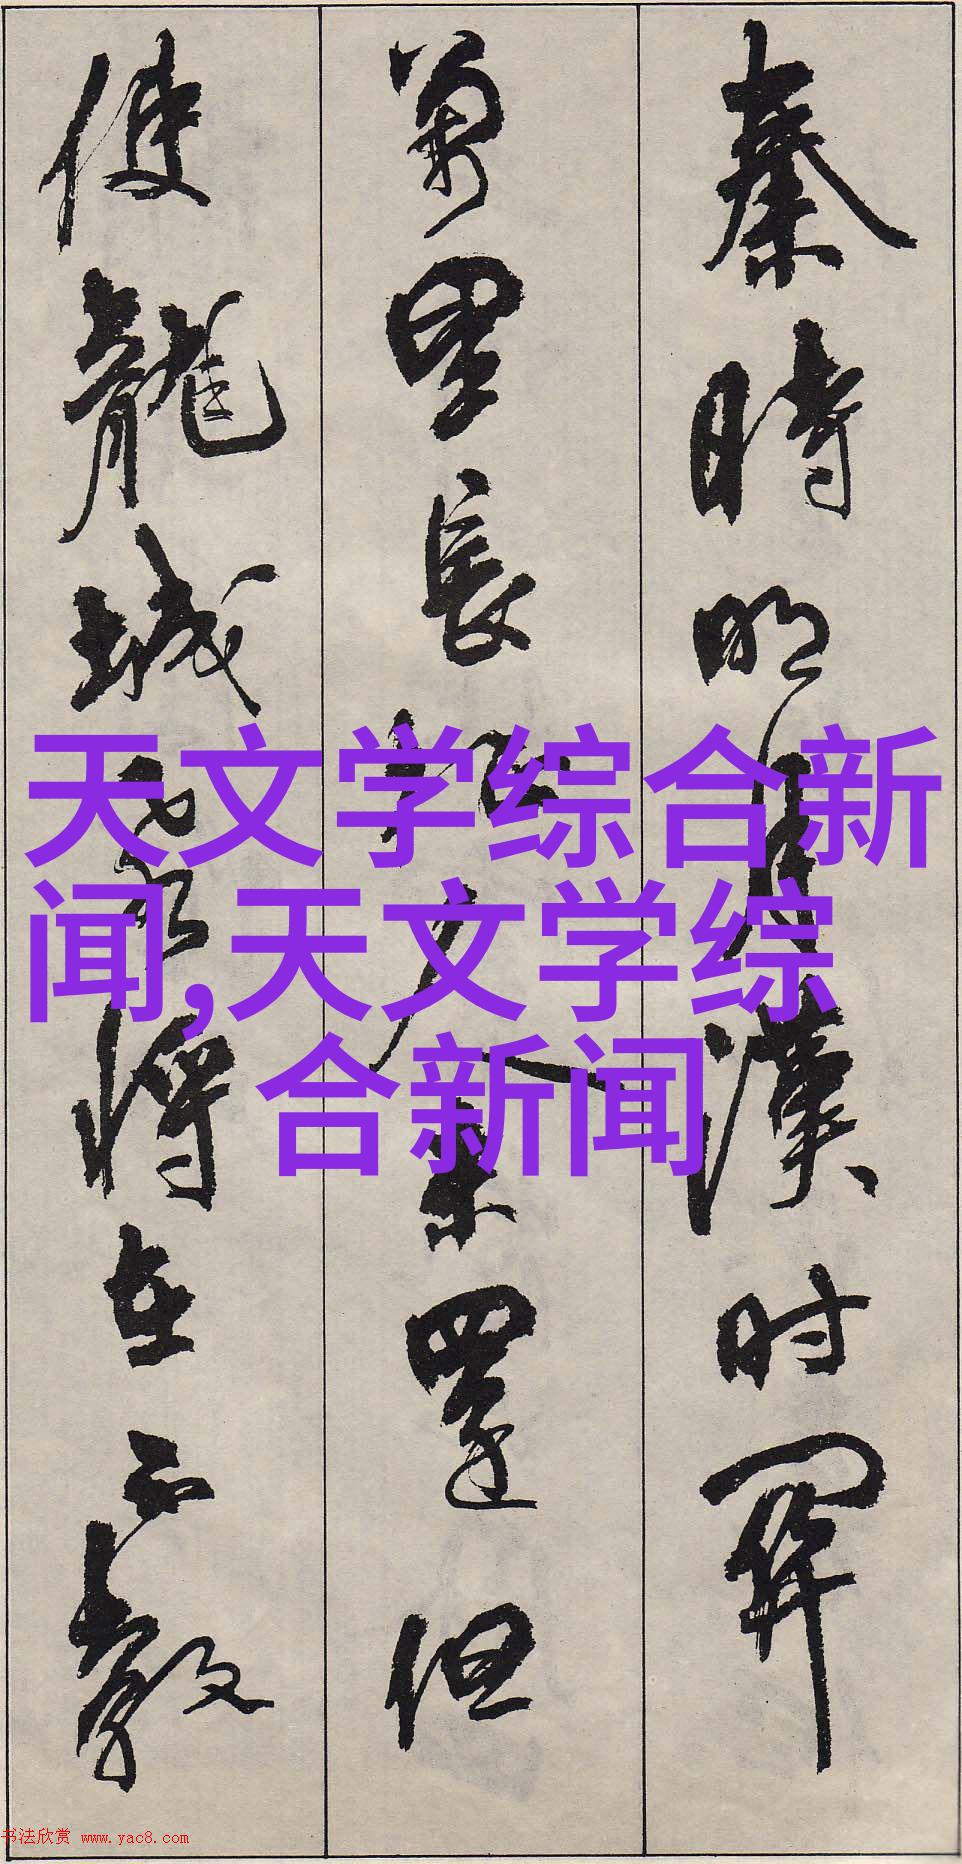 秦時明月漢时關
萬里長征人未還但
使龍城飛將在不教
天文学综合新
闻,天文学综
合新闻
书法欣赏 www.yac8.com